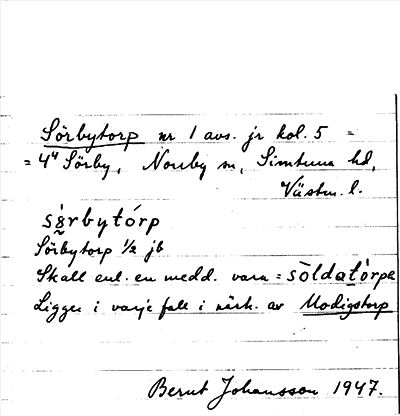 Sörbytorp nr 1 avs. jr kol. 5 =
= 4⁴ Sörby, Norrby sn, Simtuna hd,
Västm. l.
sörbytórp
Sörbytorp ½ jb
Skall enl. en medd. vara = sòldatòrpe
Ligger i varje fall i närh. av Modigstorp
Bernt Johansson 1947.